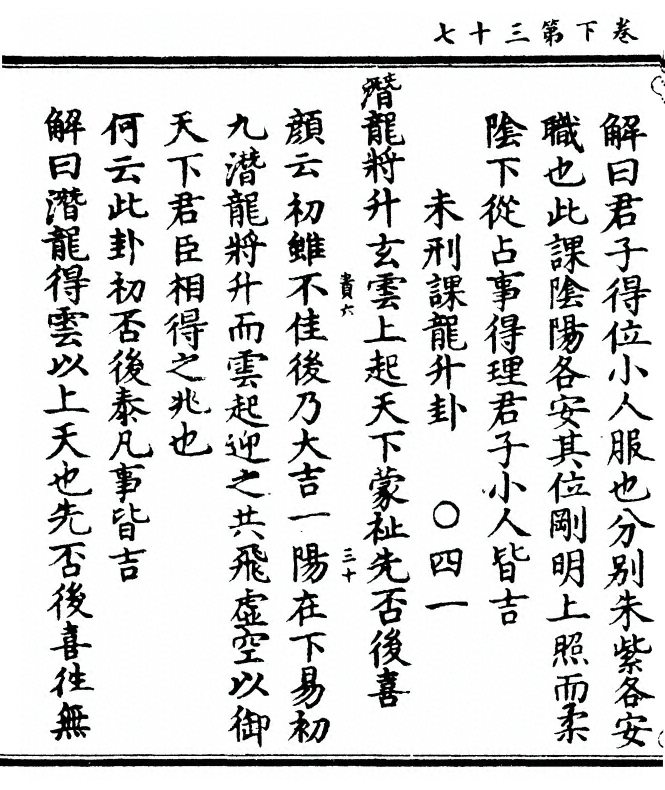 卷下第三十七
解曰君子得位小人服也分別朱紫各安
職也此課陰陽各安其位剛明上照而柔
陰下從占事得理君子小人皆吉
未刑課龍升卦 〇四一
潛龍將升玄雲上起天下蒙祉先否後喜
貴六
三十
顏云初雖不佳後乃大吉一陽在下易初
九潛龍將升而雲起迎之共飛虛空以御
天下君臣相得之兆也
何云此卦初否後泰凡事皆吉
解曰潛龍得雲以上天也先否後喜徃無